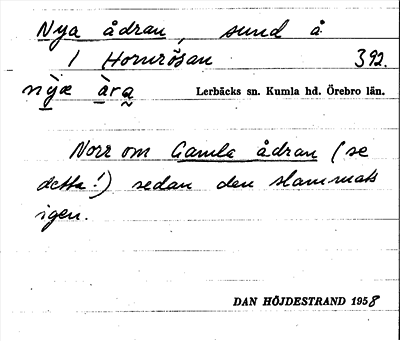 Nya ådran, sund å
i Hornrösan 392.
nỳæ àra Lerbäcks sn. Kumla hd. Örebro län.
Norr om Gamla ådran (se
detta!) sedan den slammats
igen.
DAN HÖJDESTRAND 1958